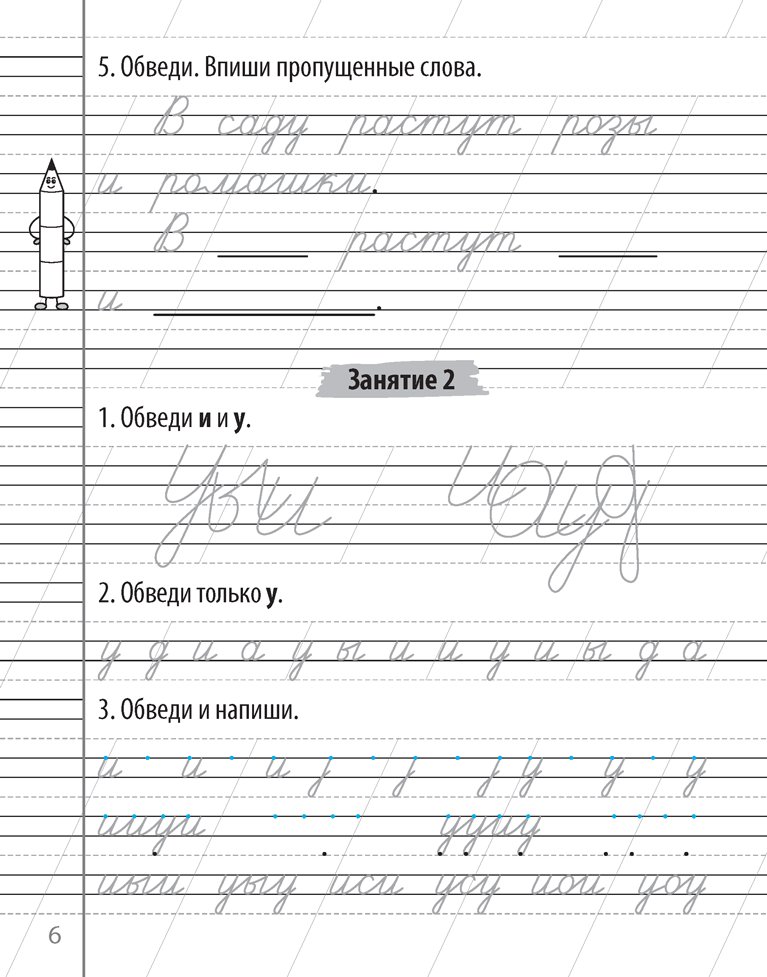 5. Обведи. Впиши пропущенные слова.
В саду растут розы
и ромашки.
В ____ растут ____
и ________.
Занятие 2
1. Обведи и и у.
2. Обведи только у.
у д и а у ы и и у и ы д а
3. Обведи и напиши.
и и и у у у
ииуи ууиу
иыи уыу иси усу иои уоу
6